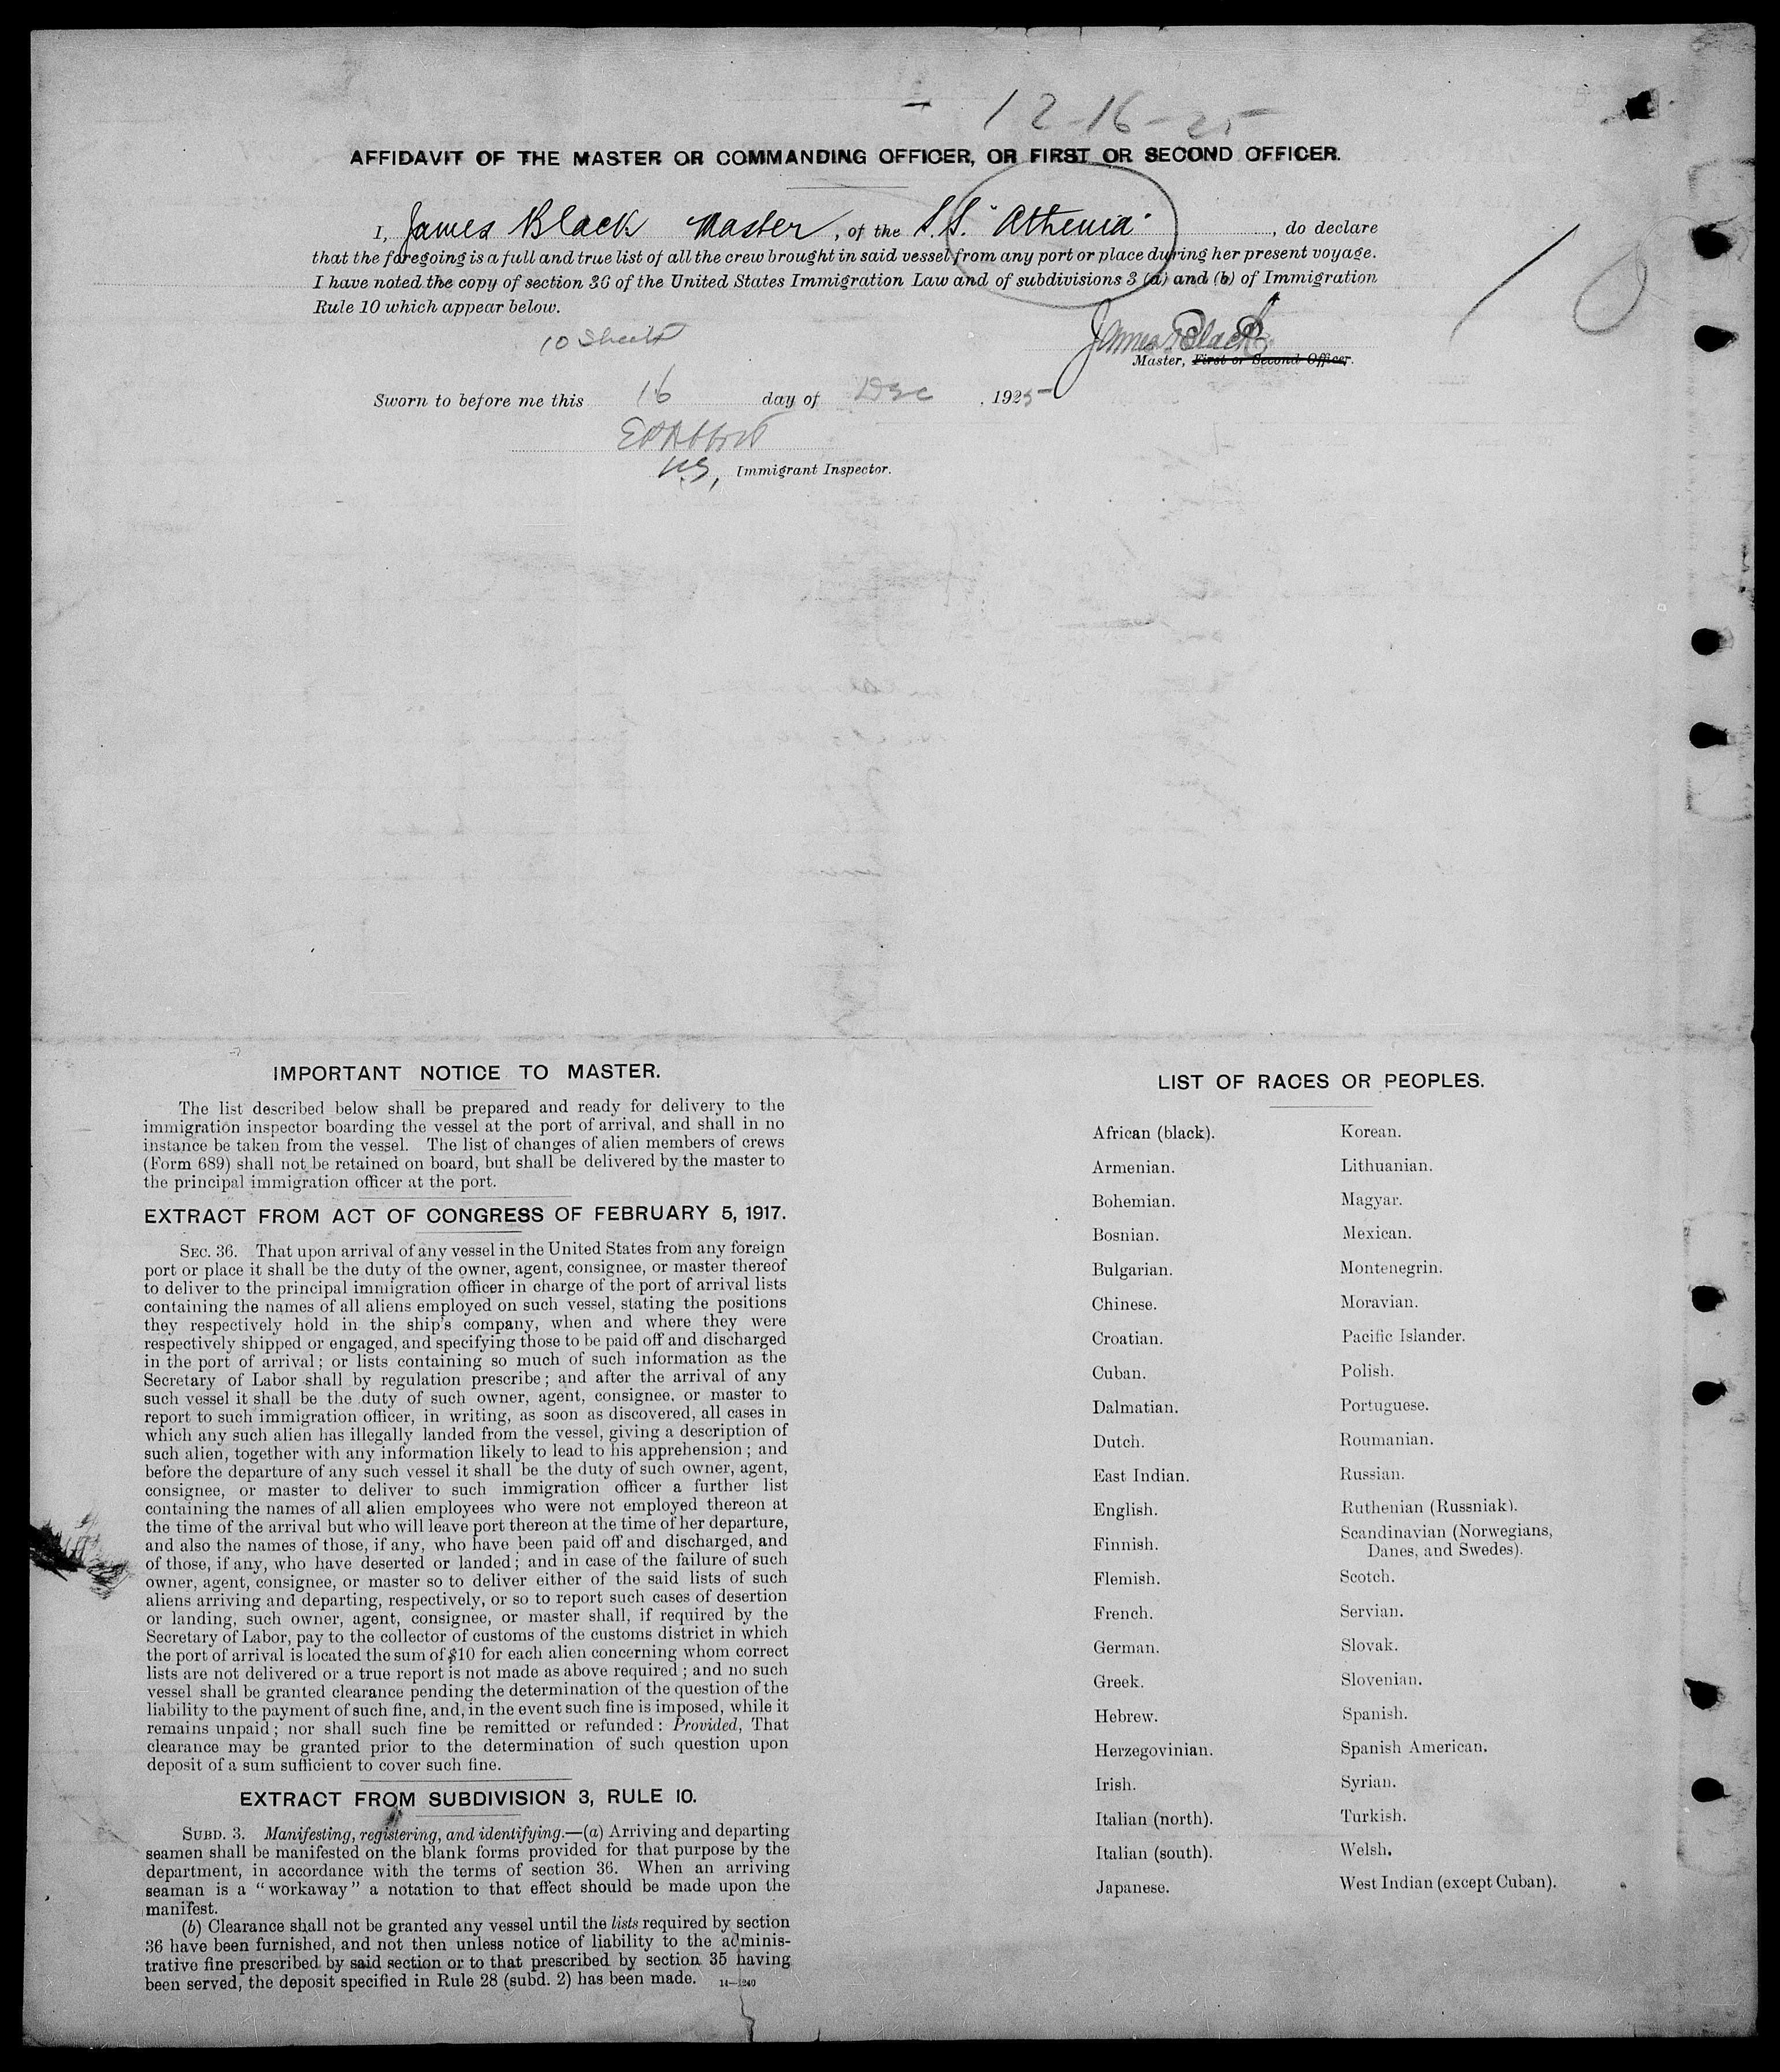 12-16-25
AFFIDAVIT OF THE MASTER OR COMMANDING OFFICER, OR FIRST OR SECOND OFFICER.
I, James Black Master, of the S.S. "Athenia", do declare
that the foregoing is a full and true list of all the crew brought in said vessel from any port or place during her present voyage.
I have noted the copy of section 36 of the United States Immigration Law and of subdivisions 3 (a) and (b) of Immigration
Rule 10 which appear below.
10
10 Sheets
James Black
Master, First or Second Officer.
Sworn to before me this 16 day of Dec, 1925
U.S, Immigrant Inspector.
IMPORTANT NOTICE TO MASTER.
The list described below shall be prepared and ready for delivery to the
immigration inspector boarding the vessel at the port of arrival, and shall in no
instance be taken from the vessel. The list of changes of alien members of crews
(Form 689) shall not be retained on board, but shall be delivered by the master to
the principal immigration officer at the port.
EXTRACT FROM ACT OF CONGRESS OF FEBRUARY 5, 1917.
SEC. 36. That upon arrival of any vessel in the United States from any foreign
port or place it shall be the duty of the owner, agent, consignee, or master thereof
to deliver to the principal immigration officer in charge of the port of arrival lists
containing the names of all aliens employed on such vessel, stating the positions
they respectively hold in the ship's company, when and where they were
respectively shipped or engaged, and specifying those to be paid off and discharged
in the port of arrival; or lists containing so much of such information as the
Secretary of Labor shall by regulation prescribe; and after the arrival of any
such vessel it shall be the duty of such owner, agent, consignee, or master to
report to such immigration officer, in writing, as soon as discovered, all cases in
which any such alien has illegally landed from the vessel, giving a description of
such alien, together with any information likely to lead to his apprehension; and
before the departure of any such vessel it shall be the duty of such owner, agent,
consignee, or master to deliver to such immigration officer a further list
containing the names of all alien employees who were not employed thereon at
the time of the arrival but who will leave port thereon at the time of her departure,
and also the names of those, if any, who have been paid off and discharged, and
of those, if any, who have deserted or landed; and in case of the failure of such
owner, agent, consignee, or master so to deliver either of the said lists of such
aliens arriving and departing, respectively, or so to report such cases of desertion
or landing, such owner, agent, consignee, or master shall, if required by the
Secretary of Labor, pay to the collector of customs of the customs district in which
the port of arrival is located the sum of $10 for each alien concerning whom correct
lists are not delivered or a true report is not made as above required; and no such
vessel shall be granted clearance pending the determination of the question of the
liability to the payment of such fine, and, in the event such fine is imposed, while it
remains unpaid; nor shall such fine be remitted or refunded: Provided, That
clearance may be granted prior to the determination of such question upon
deposit of a sum sufficient to cover such fine.
EXTRACT FROM SUBDIVISION 3, RULE 10.
SUBD. 3. Manifesting, registering, and identifying.—(a) Arriving and departing
seamen shall be manifested on the blank forms provided for that purpose by the
department, in accordance with the terms of section 36. When an arriving
seaman is a "workaway" a notation to that effect should be made upon the
manifest.
(b) Clearance shall not be granted any vessel until the lists required by section
36 have been furnished, and not then unless notice of liability to the adminis-
trative fine prescribed by said section or to that prescribed by section 35 having
been served, the deposit specified in Rule 28 (subd. 2) has been made. 14—1240
LIST OF RACES OR PEOPLES.
African (black).
Armenian.
Bohemian.
Bosnian.
Bulgarian.
Chinese.
Croatian.
Cuban.
Dalmatian.
Dutch.
East Indian.
English.
Finnish.
Flemish.
French.
German.
Greek.
Hebrew.
Herzegovinian.
Irish.
Italian (north).
Italian (south).
Japanese.
Korean.
Lithuanian.
Magyar.
Mexican.
Montenegrin.
Moravian.
Pacific Islander.
Polish.
Portuguese.
Roumanian.
Russian.
Ruthenian (Russniak).
Scandinavian (Norwegians,
Danes, and Swedes).
Scotch.
Servian.
Slovak.
Slovenian.
Spanish.
Spanish American.
Syrian.
Turkish.
Welsh.
West Indian (except Cuban).